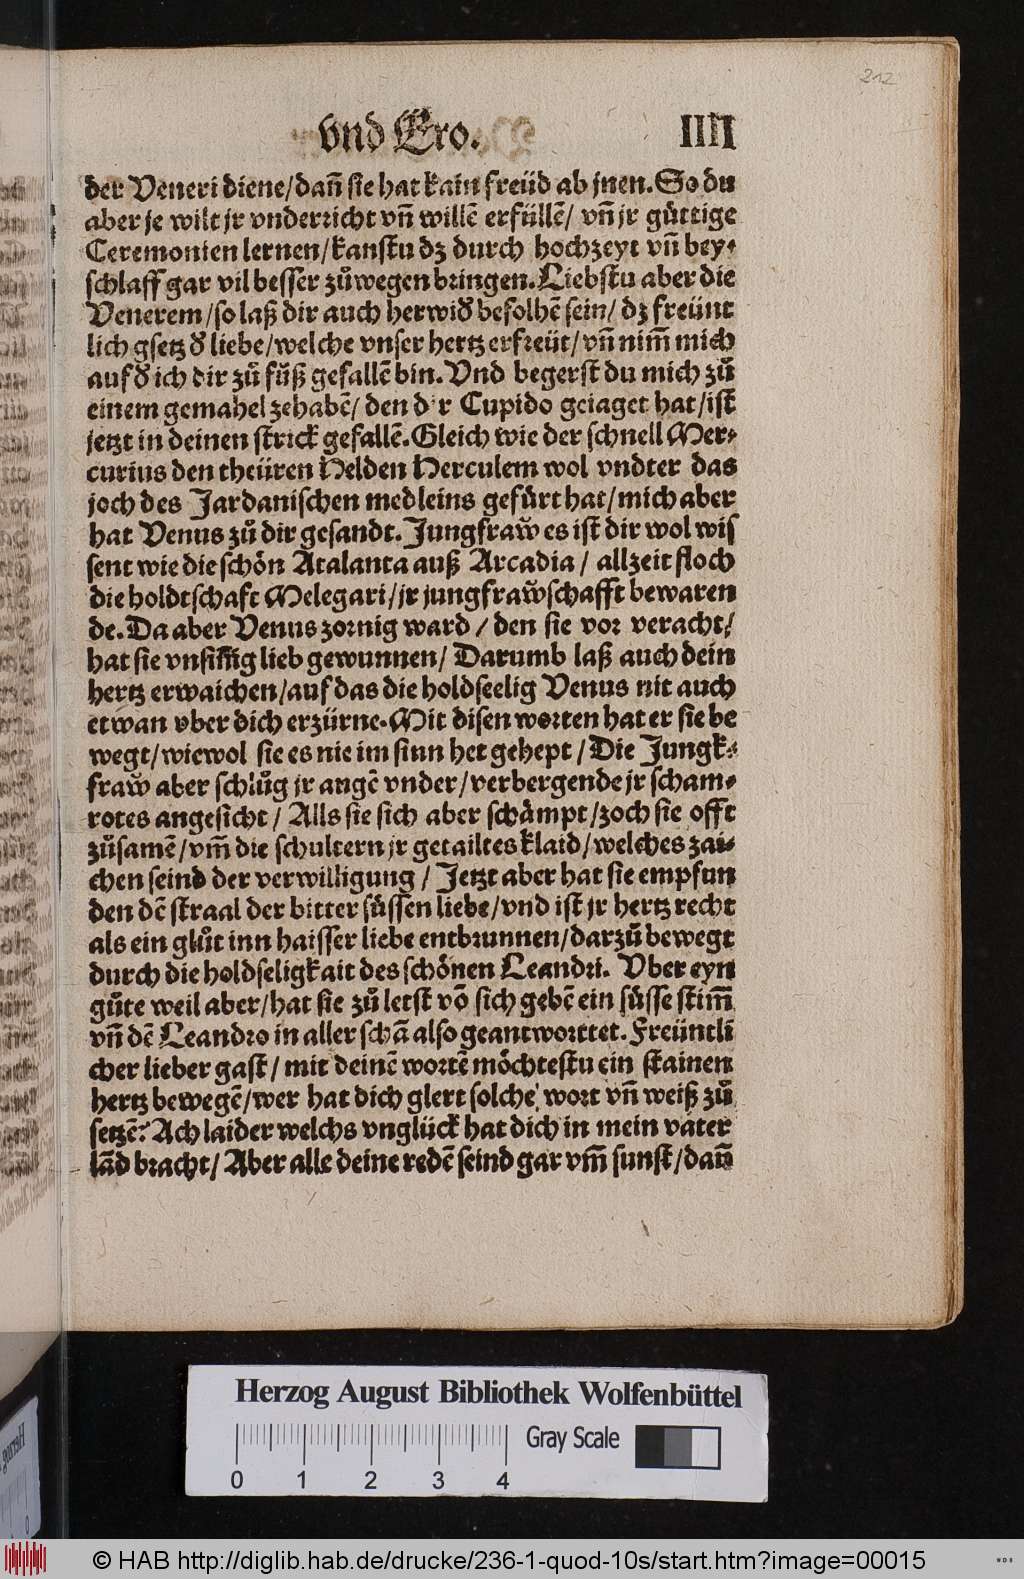 212
vnd Ero. IIII
der Veneri diene/dañ sie hat kain freüd ab jnen. So du
aber je wilt jr vnderricht vñ willẽ erfüllẽ/ vñ jr gůttige
Ceremonien lernen/kanstu dz durch hochzeyt vñ bey⸗
schlaff gar vil besser zůwegen bringen. Liebstu aber die
Venerem/so laß dir auch herwiđ befolhẽ sein/ dz freünt
lich gsetz đ liebe/welche vnser hertz erfreüt/vñ nim̃ mich
auf đ ich dir zů fůß gefallẽ bin. Vnd begerst du mich zů
einem gemahel zehabẽ/ den d r Cupido geiaget hat/ist
jetzt in deinen strick gefallẽ. Gleich wie der schnell Mer⸗
curius den theüren Helden Herculem wol vndter das
joch des Jardanischen medleins gefůrt hat/mich aber
hat Venus zů dir gesandt. Jungfraw̌ es ist dir wol wis
sent wie die schön Atalanta auß Arcadia / allzeit floch
die holdtschaft Melegari/jr jungfraw̌schafft bewaren
de. Da aber Venus zornig ward / den sie vor veracht/
hat sie vnsiñig lieb gewunnen/ Darumb laß auch dein
hertz erwaichen/auf das die holdseelig Venus nit auch
etwan vber dich erzürne. Mit disen worten hat er sie be
wegt/wiewol sie es nie im sinn het gehept / Die Jungk⸗
fraw̌ aber schlůg jr angẽ vnder/verbergende jr scham⸗
rotes angesicht / Alls sie sich aber schämpt/zoch sie offt
zůsamẽ/vm̃ die schultern jr getailtes klaid/welches zai⸗
chen seind der verwilligung / Jetzt aber hat sie empfun
den dẽ straal der bitter sůssen liebe/vnd ist jr hertz recht
als ein glůt inn haisser liebe entbrunnen/darzů bewegt
durch die holdseligkait des schönen Leandri. Vber eyn
gůte weil aber/hat sie zů letst võ sich gebẽ ein sůsse stim̃
vñ dẽ Leandro in aller schã also geantworttet. Freüntli
cher lieber gast / mit deinẽ wortẽ möchtestu ein stainen
hertz bewegẽ/wer hat dich glert solche wort vñ weiß zů
setzẽ? Ach laider welchs vnglück hat dich in mein vater
lãd bracht/ Aber alle deine redẽ seind gar vm̃ sunst/dañ
Herzog August Bibliothek Wolfenbüttel
0 1 2 3 4
Gray Scale
© HAB http://diglib.hab.de/drucke/236-1-quod-10s/start.htm?image=00015